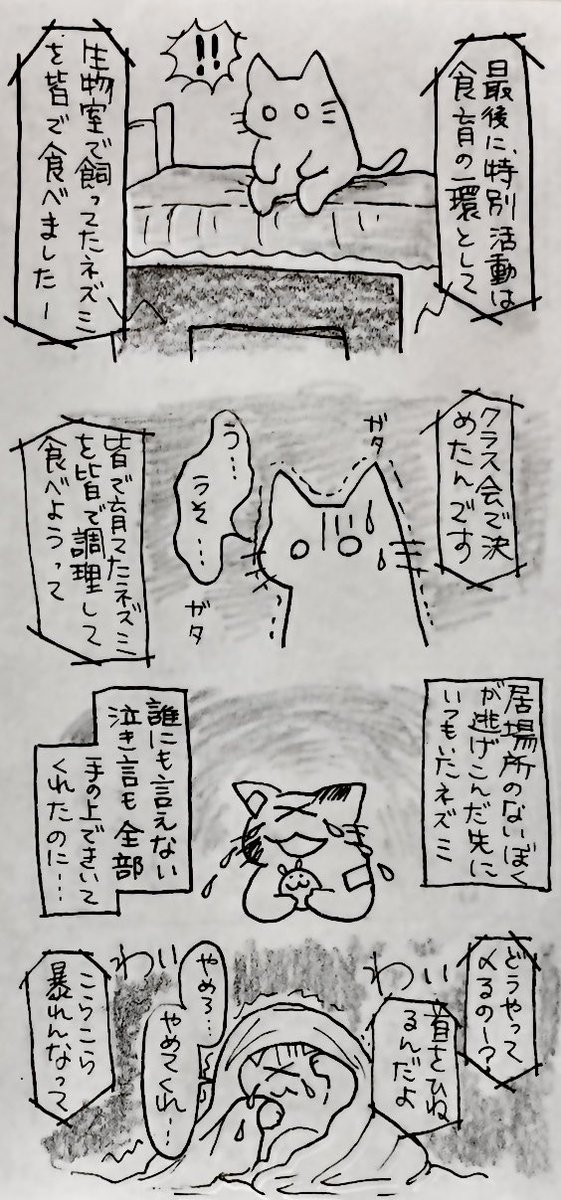 最後に、特別活動は
食育の一環として
!!
生物室で飼ってたネズミ
を皆で食べましたー
クラス会で決
めたんです
ガタ
う…
うそ…
ガタ
皆で育てたネズミ
を皆で調理して
食べようって
居場所のないぼく
が逃げこんだ先に
いつもいたネズミ
誰にも言えない
泣き言も全部
手の上できいて
くれたのに…
どうやって
〆るのー?
わい
首をひね
るんだよ
やめろ…
やめてくれ…
わい
こらこら
暴れんなって